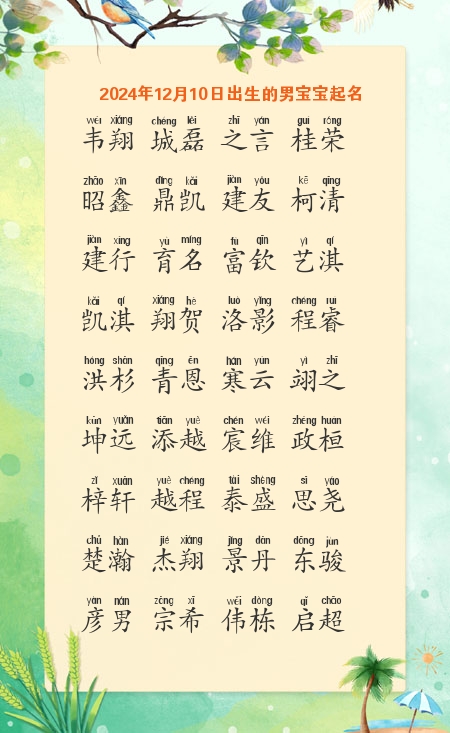 2024年12月10日出生的男宝宝起名
wéi xiáng chéng lěi zhī yán guì róng
韦翔 城磊 之言 桂荣
zhāo xīn dǐng kǎi jiàn yǒu kē qīng
昭鑫 鼎凯 建友 柯清
jiàn xíng yù míng fù qīn yì qí
建行 育名 富钦 艺淇
kǎi qí xiáng hè luò yǐng chéng ruì
凯淇 翔贺 洛影 程睿
hóng shān qīng ēn hán yún yì zhī
洪杉 青恩 寒云 翊之
kūn yuǎn tiān yuè chén wéi zhèng huán
坤远 添越 宸维 政桓
zǐ xuān yuè chéng tài shèng sī yáo
梓轩 越程 泰盛 思尧
chǔ hàn jié xiáng jǐng dān dōng jùn
楚瀚 杰翔 景丹 东骏
yàn nán zōng xī wěi dòng qǐ chāo
彦男 宗希 伟栋 启超